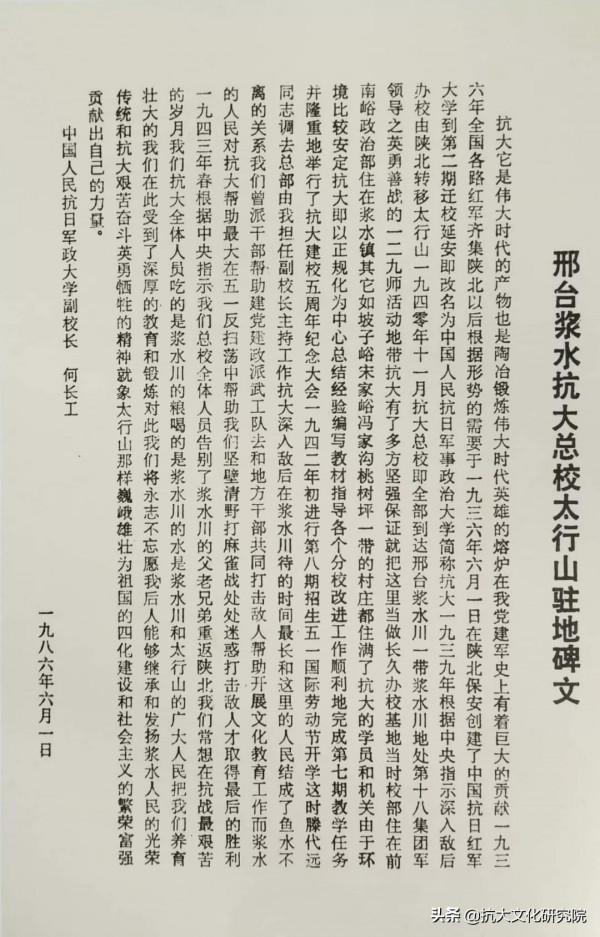 邢台浆水抗大总校太行山驻地碑文
抗大它是伟大时代的产物也是陶冶锻炼伟大时代英雄的熔炉在我党建军史上有着巨大的贡献一九三
六年全国各路红军齐集陕北以后根据形势的需要于一九三六年六月一日在陕北保安创建了中国抗日红军
大学到第二期迁校延安即改名为中国人民抗日军事政治大学简称抗大一九三九年根据中央指示深入敌后
办校由陕北转移太行山一九四零年十一月抗大总校即全部到达邢台浆水川一带浆水川地处第十八集团军
领导之英勇善战的一二九师活动地带抗大有了多方坚强保证就把这里当做长久办校基地当时校部住在前
南峪政治部住在浆水镇其它如坡子峪宋家峪冯家沟桃树坪一带的村庄都住满了抗大的学员和机关由于环
境比较安定抗大即以正规化为中心总结经验编写教材指导各个分校改进工作顺利地完成第七期教学任务
并隆重地举行了抗大建校五周年纪念大会一九四二年初进行第八期招生五一国际劳动节开学这时滕代远
同志调去总部由我担任副校长主持工作抗大深入敌后在浆水川待的时间最长和这里的人民结成了鱼水不
离的关系我们曾派干部帮助建党建政派武工队去和地方干部共同打击敌人帮助开展文化教育工作而浆水
的人民对抗大帮助最大在五一反扫荡中帮助我们坚壁清野打麻雀战处处迷惑打击敌人才取得最后的胜利
一九四三年春根据中央指示我们总校全体人员告别了浆水川的父老兄弟重返陕北我们常想在抗战最艰苦
的岁月我们抗大全体人员吃的是浆水川的粮喝的是浆水川的水是浆水川和太行山的广大人民把我们养育
壮大的我们在此受到了深厚的教育和锻炼对此我们将永志不忘愿我后人能够继承和发扬浆水人民的光荣
传统和抗大艰苦奋斗英勇牺牲的精神就象太行山那样巍峨雄壮为祖国的四化建设和社会主义的繁荣富强
贡献出自己的力量。
中国人民抗日军政大学副校长 何长工
一九八六年六月一日
头条 @抗大文化研究院